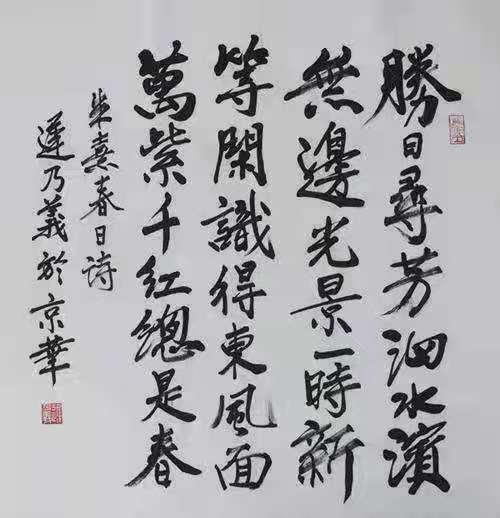 勝日尋芳泗水濱
無邊光景一時新
等閑識得東風面
萬紫千紅總是春
朱熹春日詩
乃義於京華